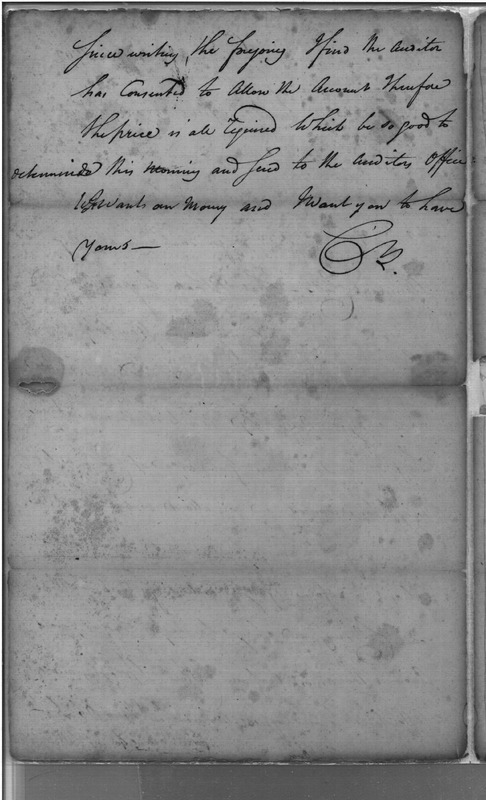 Since writing the foregoing I find the Auditor
has Consented to Allow the Account Therefore
the price is all required Which be so good to
determine this morning and send to the Auditors Office
Wants our Money and I Want you to have
Yours —